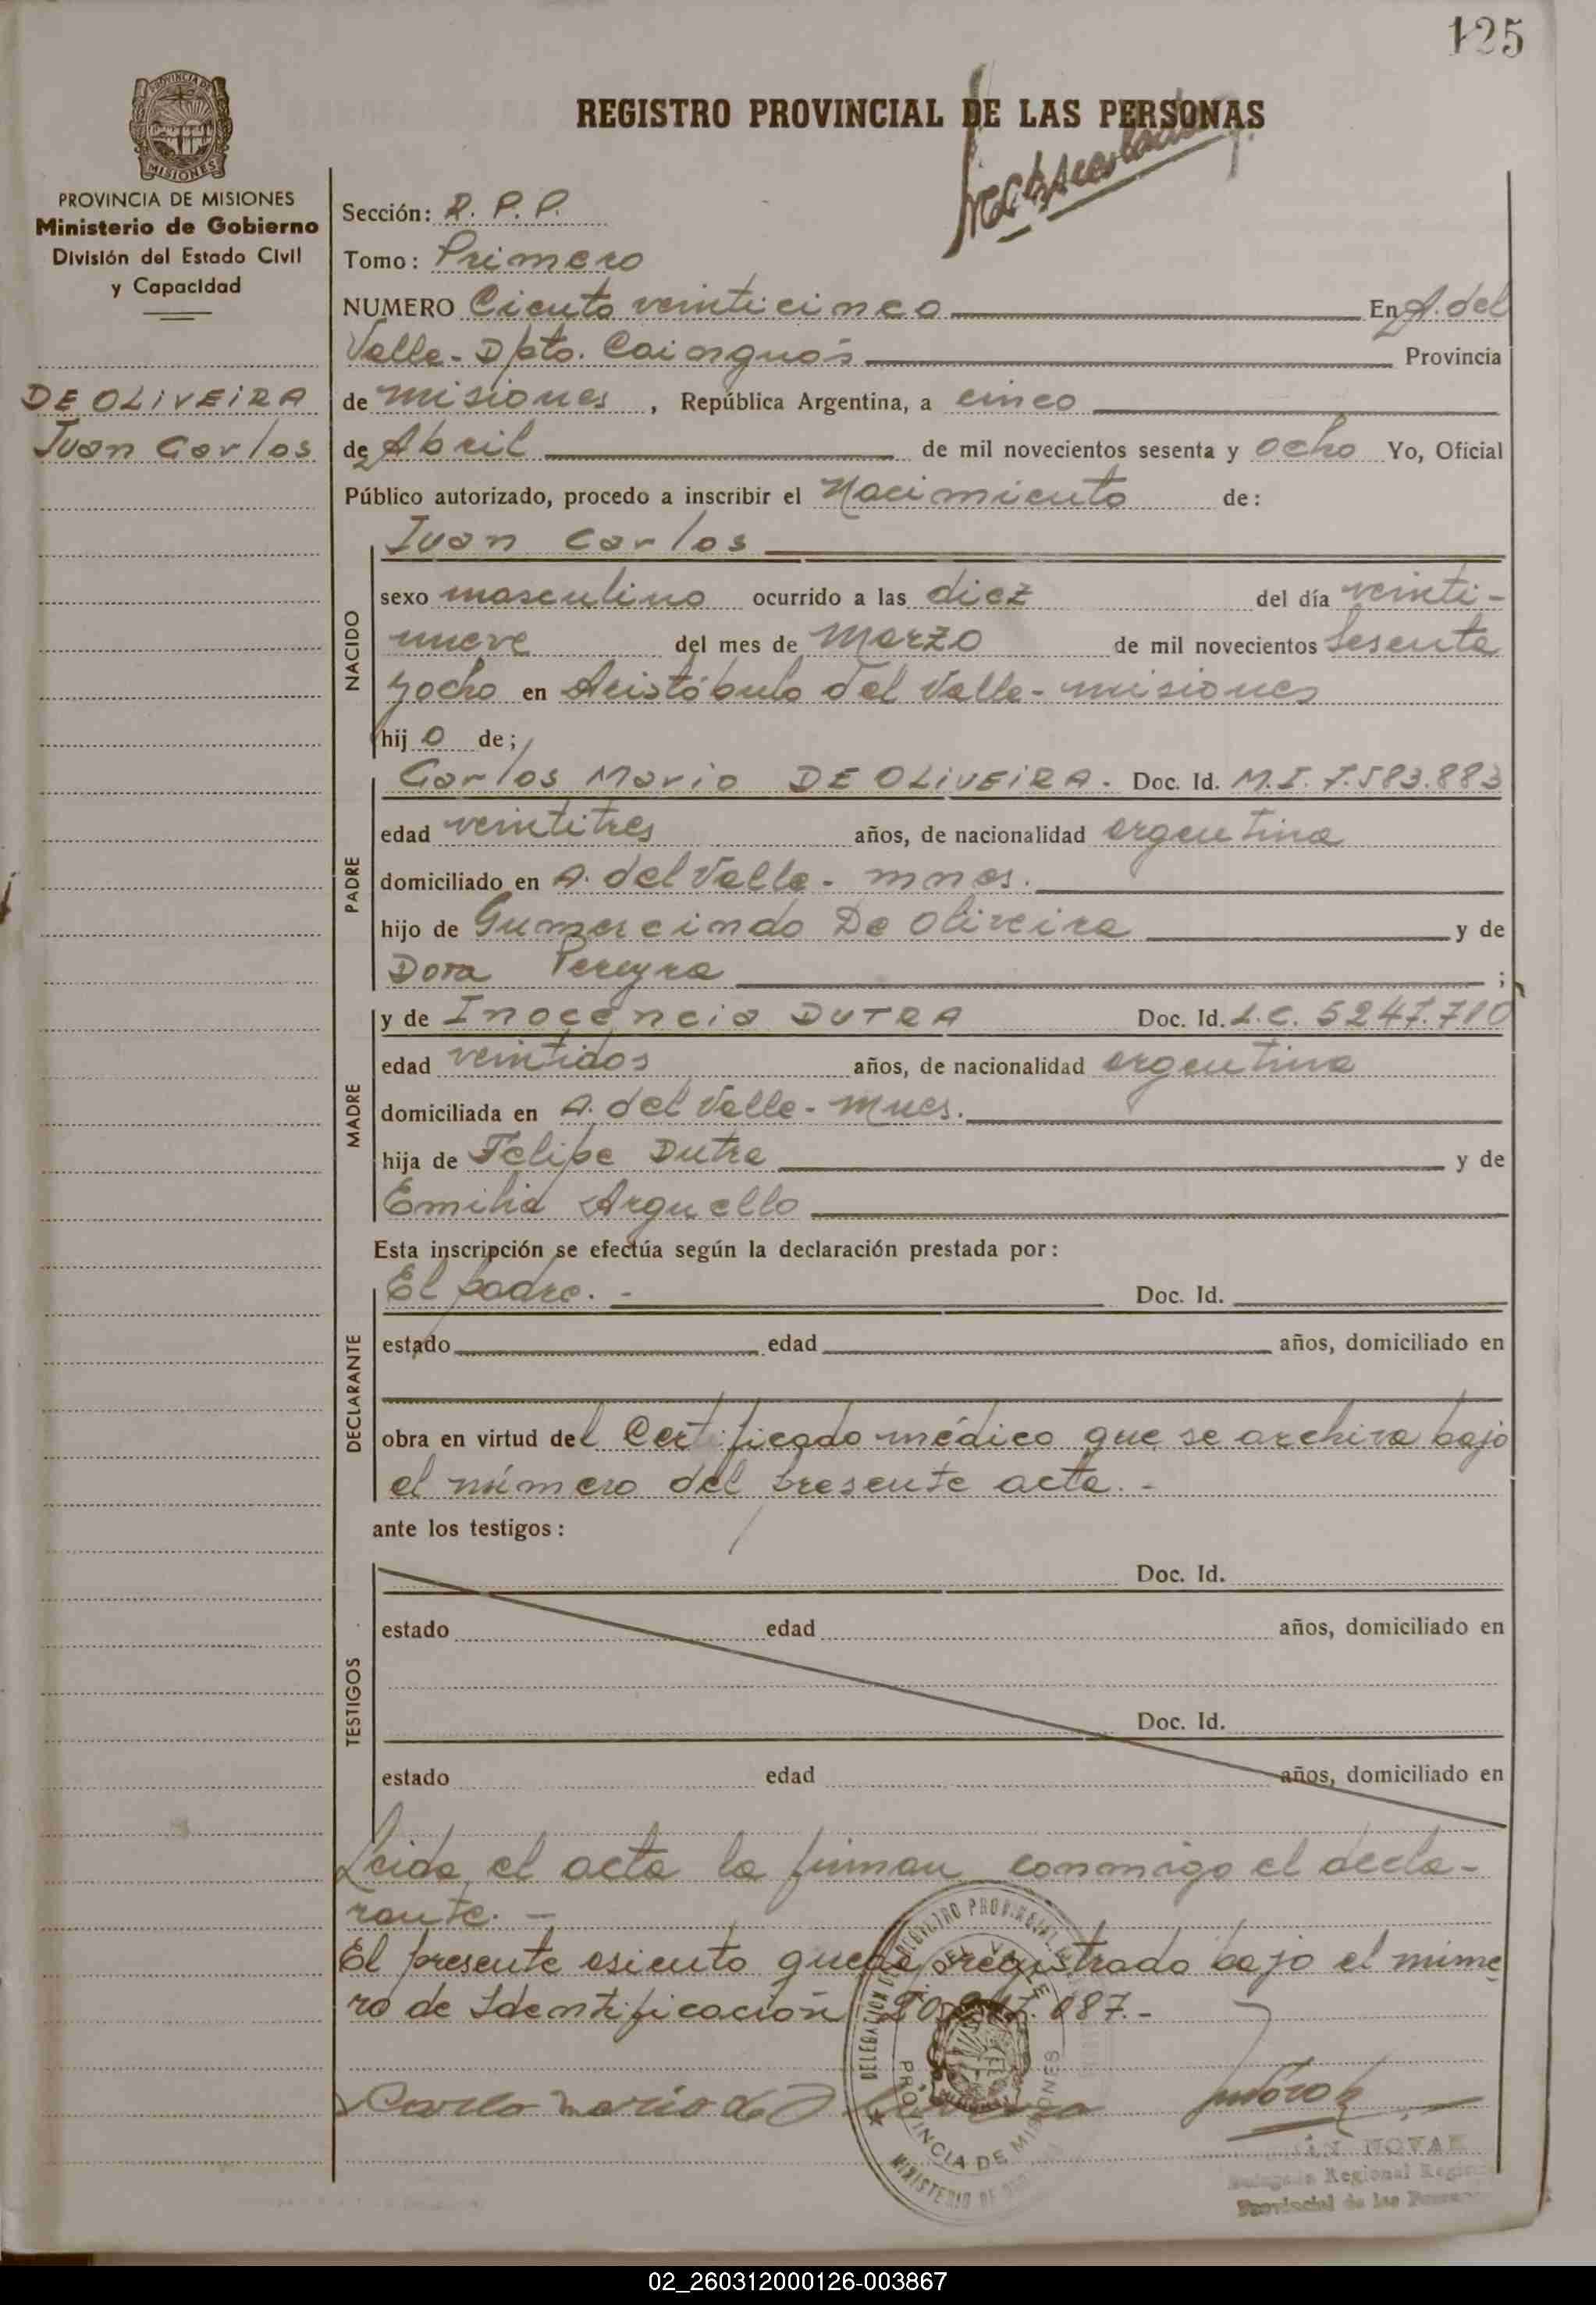 125
REGISTRO PROVINCIAL DE LAS PERSONAS
PROVINCIA DE MISIONES
MISIONES
PROVINCIA DE MISIONES
Ministerio de Gobierno
División del Estado Civil
y Capacidad
DE OLIVEIRA
Juan Carlos
Sección: R. P. P.
Tomo: Primero
NUMERO Ciento veinticinco En A. del
Valle - Dpto. Cainguás Provincia
de misiones, República Argentina, a cinco
de Abril de mil novecientos sesenta y ocho Yo, Oficial
Público autorizado, procedo a inscribir el Nacimiento de:
NACIDO
Juan Carlos
sexo masculino ocurrido a las diez del día veinti-
nueve del mes de Marzo de mil novecientos Sesenta
y ocho en Aristóbulo del Valle - misiones
hij o de;
PADRE
Carlos Mario DE OLIVEIRA. Doc. Id. M.I. 7.583.883
edad veintitres años, de nacionalidad argentina
domiciliado en A. del Valle - mnes.
hijo de Gumercindo De Oliveira y de
Dora Pereyra ;
MADRE
y de Inocencia DUTRA Doc. Id. L.C. 5247.710
edad veintidos años, de nacionalidad argentina
domiciliada en A. del Valle - Mnes.
hija de Felipe Dutra y de
Emilia Arguello
Esta inscripción se efectúa según la declaración prestada por:
DECLARANTE
El padre. - Doc. Id.
estado edad años, domiciliado en
obra en virtud del Certificado médico que se archiva bajo
el número del presente acta. -
ante los testigos:
TESTIGOS
Doc. Id.
estado edad años, domiciliado en
Doc. Id.
estado edad años, domiciliado en
Leida el acta la firman conmigo el decla-
rante. -
El presente asiento queda registrado bajo el núme
ro de Identificación 087.-
Carlo Mario de Oliveira
REGISTRO PROVINCIAL
DEL VALLE
PROVINCIA DE MISIONES
MINISTERIO DE
NOVAK
Delegado Regional
Provincial de las
02_260312000126-003867